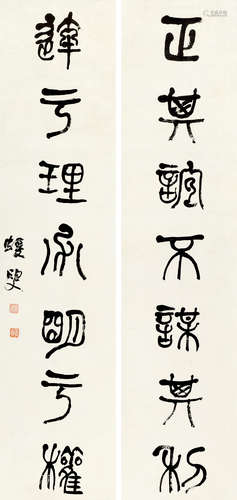 正其誼不謀其利
達亏理必明亏權
蝯叟